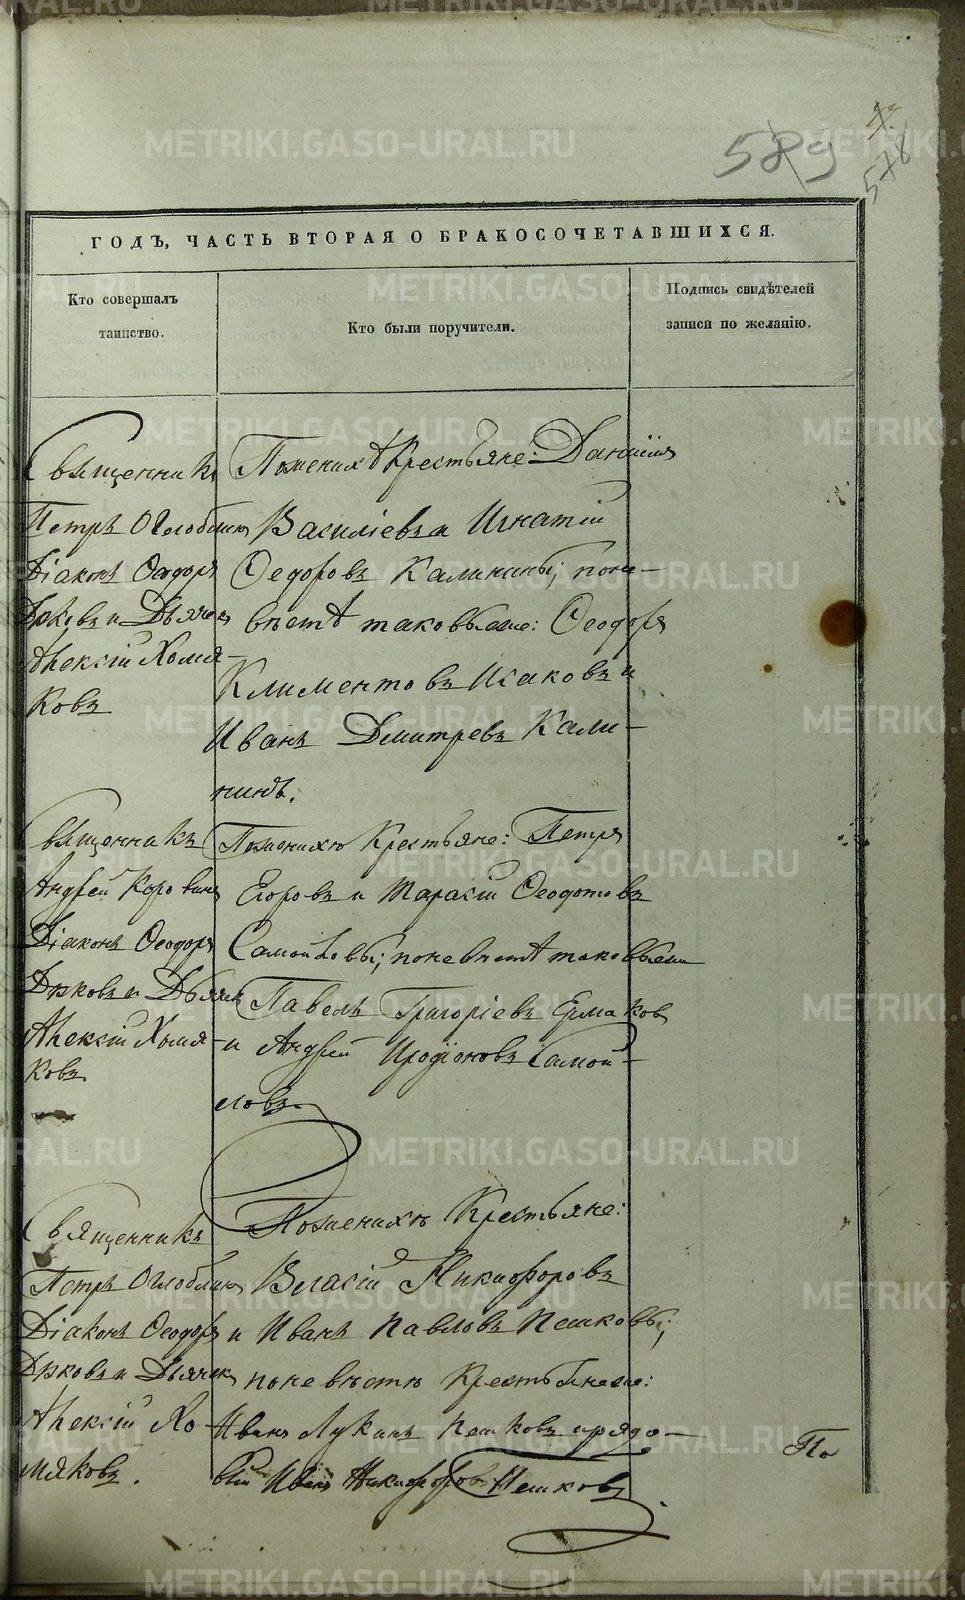 589
578
ГОДЪ, ЧАСТЬ ВТОРАЯ О БРАКОСОЧЕТАВШИХСЯ.
Кто совершалъ
таинство.
Кто были поручители.
Подпись свидѣтелей
записи по желанію.
Священникъ
Петръ Оглоблинъ
Діаконъ Феодоръ
Дьковъ и Дьячекъ
Алексій Хомя-
ковъ
По женихѣ Крестьяне: Даніилъ
Васильевъ и Игнатій
Федоровъ Калинины; по не-
вѣстѣ таковыеже: Феодоръ
Климентовъ Исаковъ и
Иванъ Дмитревъ Кали-
нинъ.
Священникъ
Андрей Коровинъ
Діаконъ Феодоръ
Дьковъ и Дьячекъ
Алексій Хомя-
ковъ
По женихѣ Крестьяне: Петръ
Егоровъ и Тарасій Феодотовъ
Самойловы; по невѣстѣ таковыеже
Павелъ Григоріевъ Ермаков
и Андрей Иродіоновъ Самой-
ловъ.
Священникъ
Петръ Оглоблинъ
Діаконъ Феодоръ
Дьковъ и Дьячекъ
Алексій Хо-
мяковъ.
По женихѣ Крестьяне:
Власій Никифоровъ
и Иванъ Павловъ Пешковы;
по невѣстѣ Крестьянеже:
Иванъ Лукинъ Пешковъ и рядо-
вый Иванъ Никифоровъ Пешковъ
По
METRIKI.GASO-URAL.RU